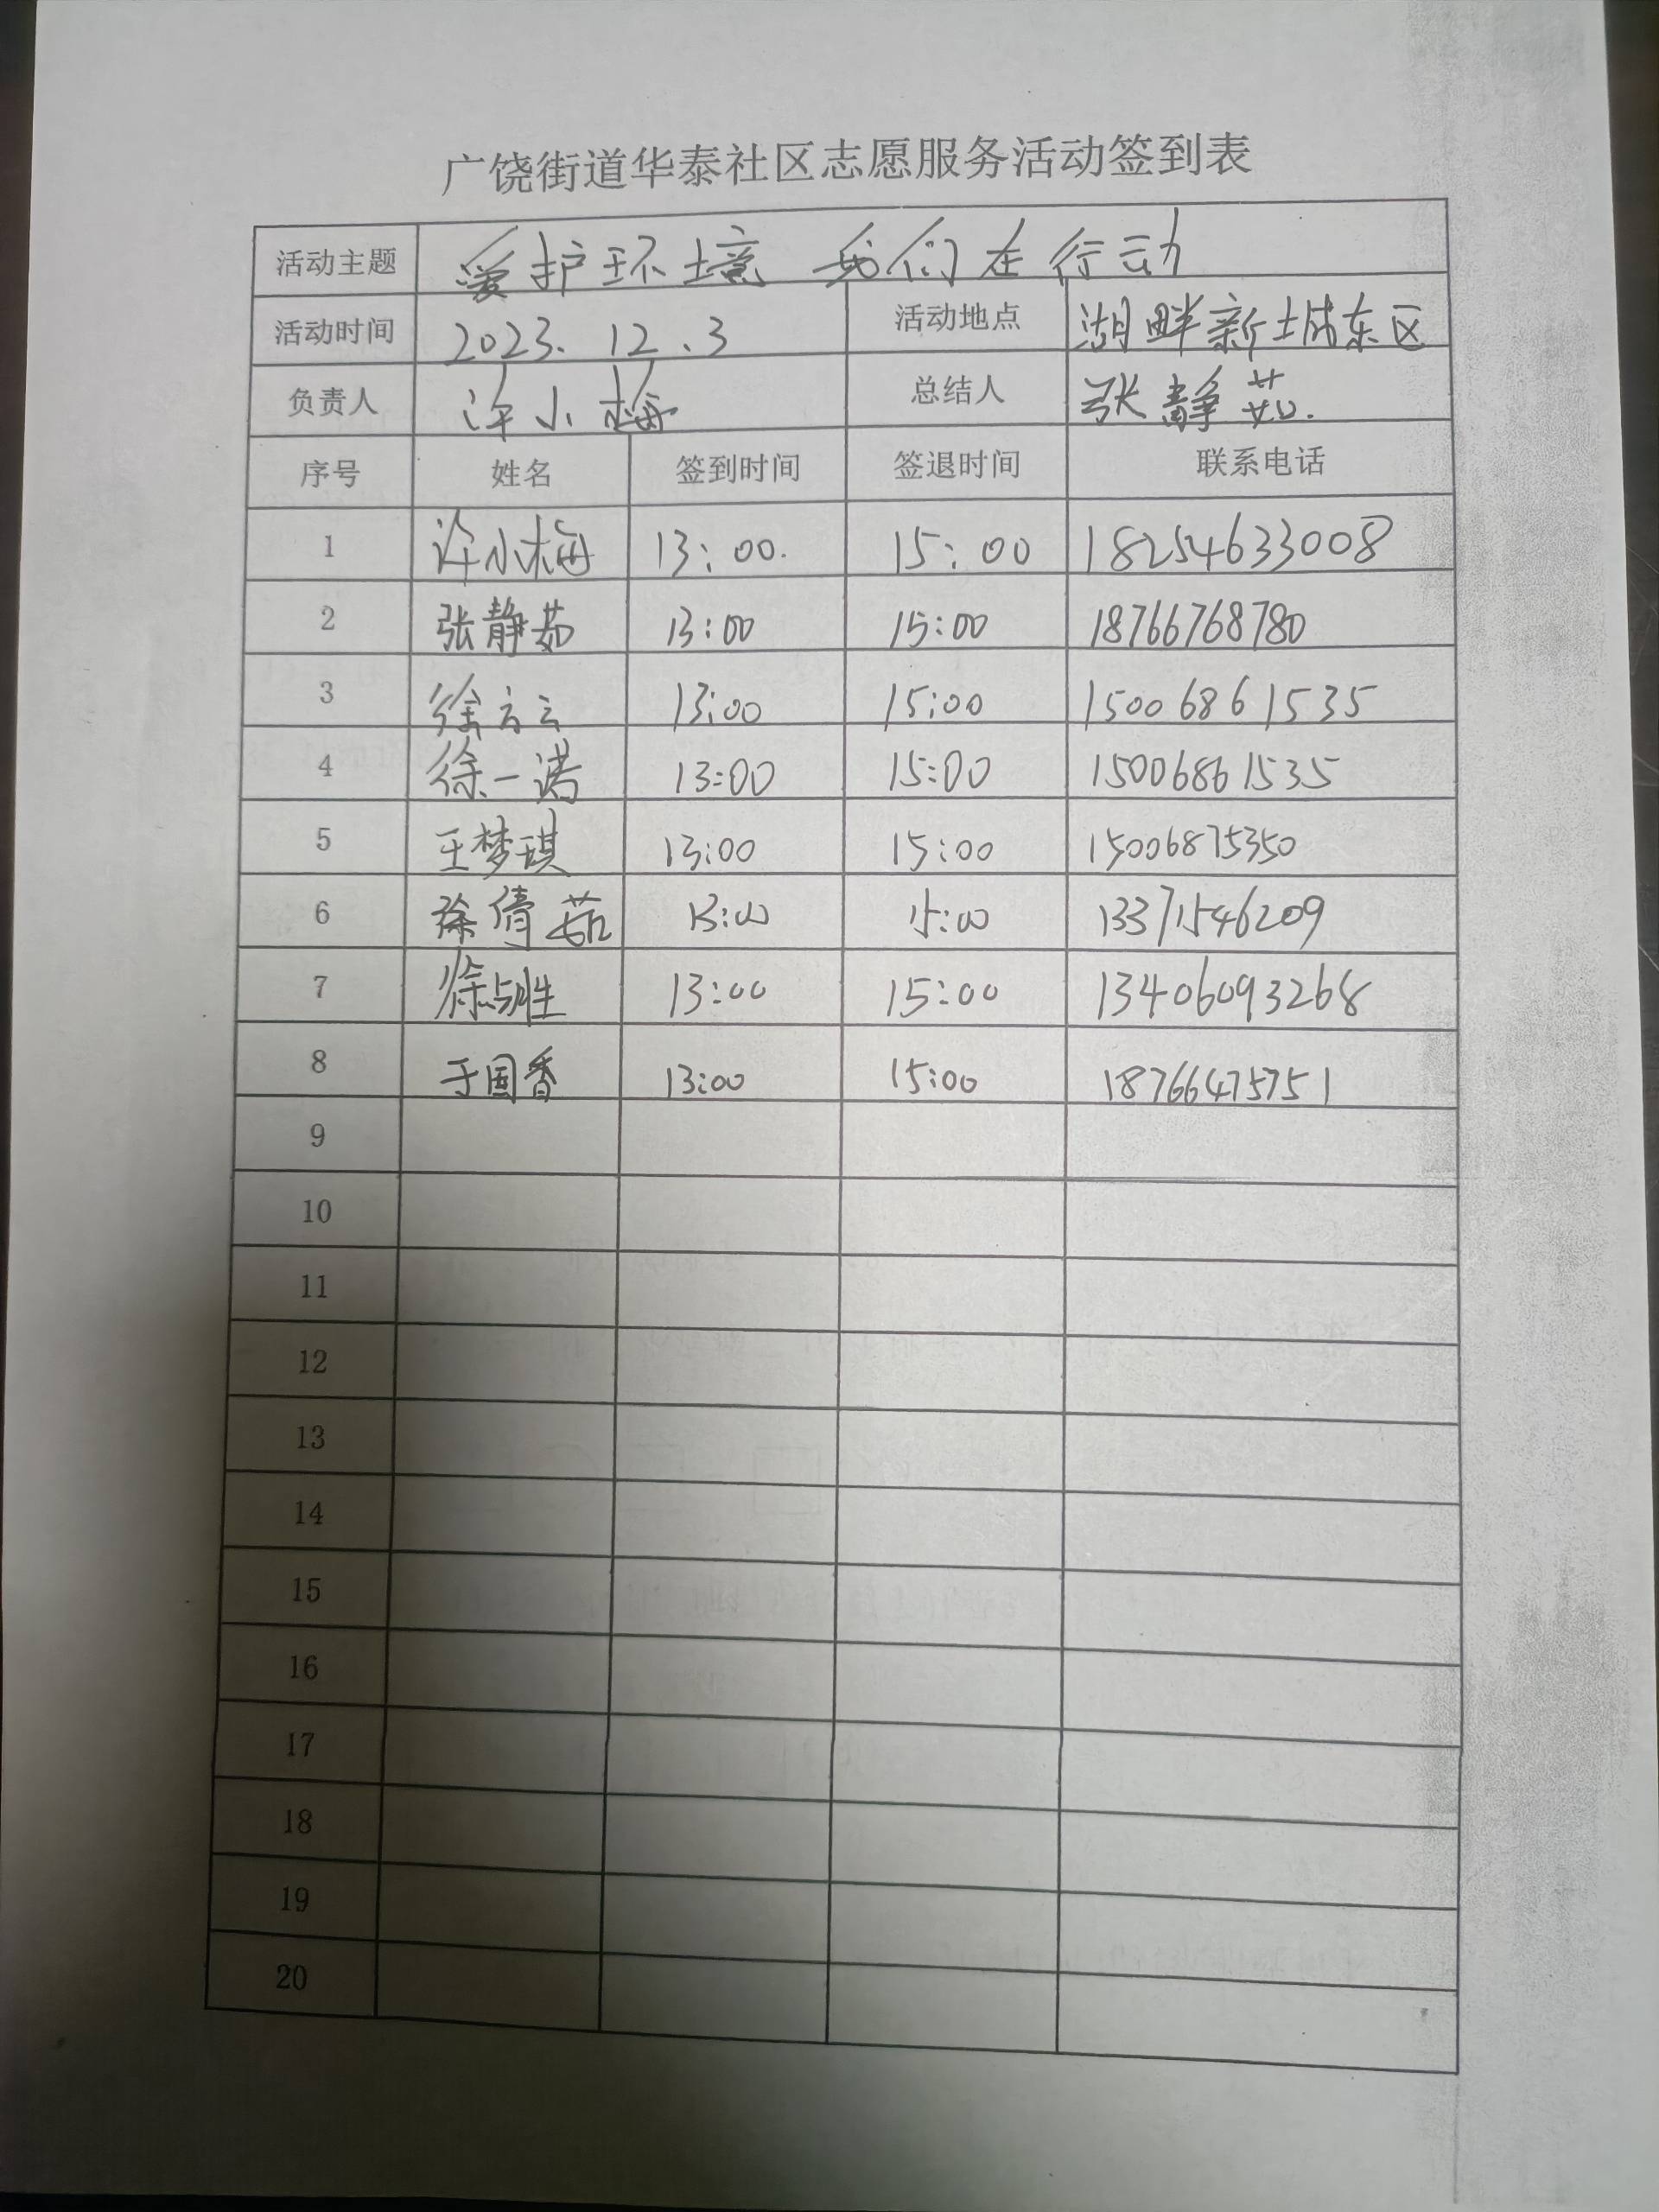 广饶街道华泰社区志愿服务活动签到表
活动主题 爱护环境 我们在行动
活动时间 2023.12.3 活动地点 湖畔新城东区
负责人 许小梅 总结人 张静茹.
序号 姓名 签到时间 签退时间 联系电话
1 许小梅 13:00. 15:00 18254633008
2 张静茹 13:00 15:00 18766768780
3 徐云云 13:00 15:00 15006861535
4 徐一诺 13:00 15:00 15006861535
5 王梦琪 13:00 15:00 15006875350
6 徐倩茹 13:00 15:00 13371546209
7 13:00 15:00 13406093268
8 于国香 13:00 15:00 18766475751
9
10
11
12
13
14
15
16
17
18
19
20